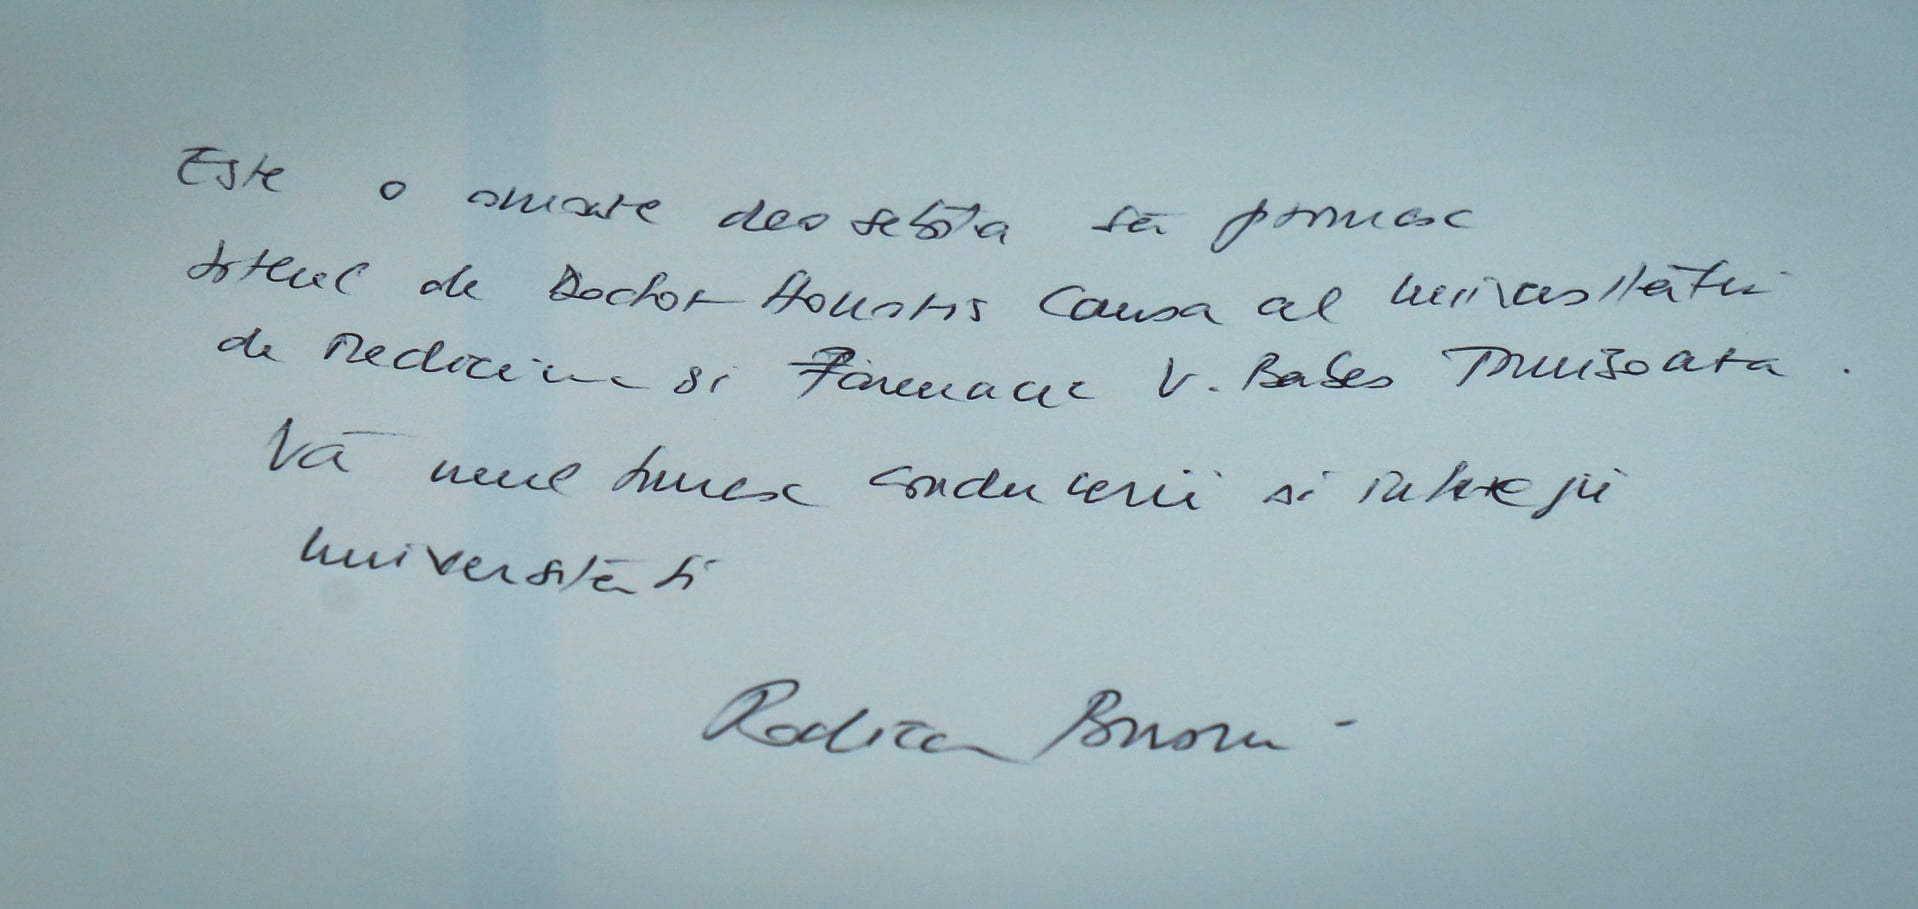 Este o onoare deosebita să primesc
titlul de Doctor Honoris Causa al Universitatii
de Medicina si Farmacie V. Babes Timișoara.
Vă multumesc conducerii si intregii
Universități
Rodica